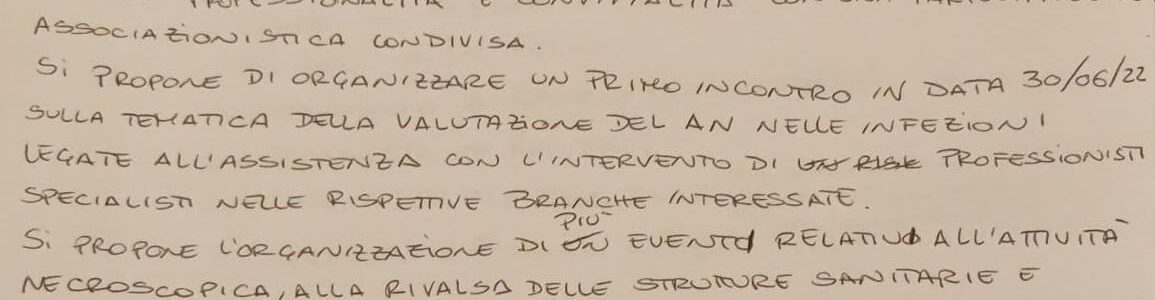 PROFESSIONALITÀ E CONVIVIALITÀ CON
ASSOCIAZIONISTICA CONDIVISA.
SI PROPONE DI ORGANIZZARE UN PRIMO INCONTRO IN DATA 30/06/22
SULLA TEMATICA DELLA VALUTAZIONE DEL AN NELLE INFEZIONI
LEGATE ALL'ASSISTENZA CON L'INTERVENTO DI UN RISK PROFESSIONISTI
SPECIALISTI NELLE RISPETTIVE BRANCHE INTERESSATE.
SI PROPONE L'ORGANIZZAZIONE DI UN PIÙ EVENTI RELATIVI ALL'ATTIVITÀ
NECROSCOPICA, ALLA RIVALSA DELLE STRUTTURE SANITARIE E